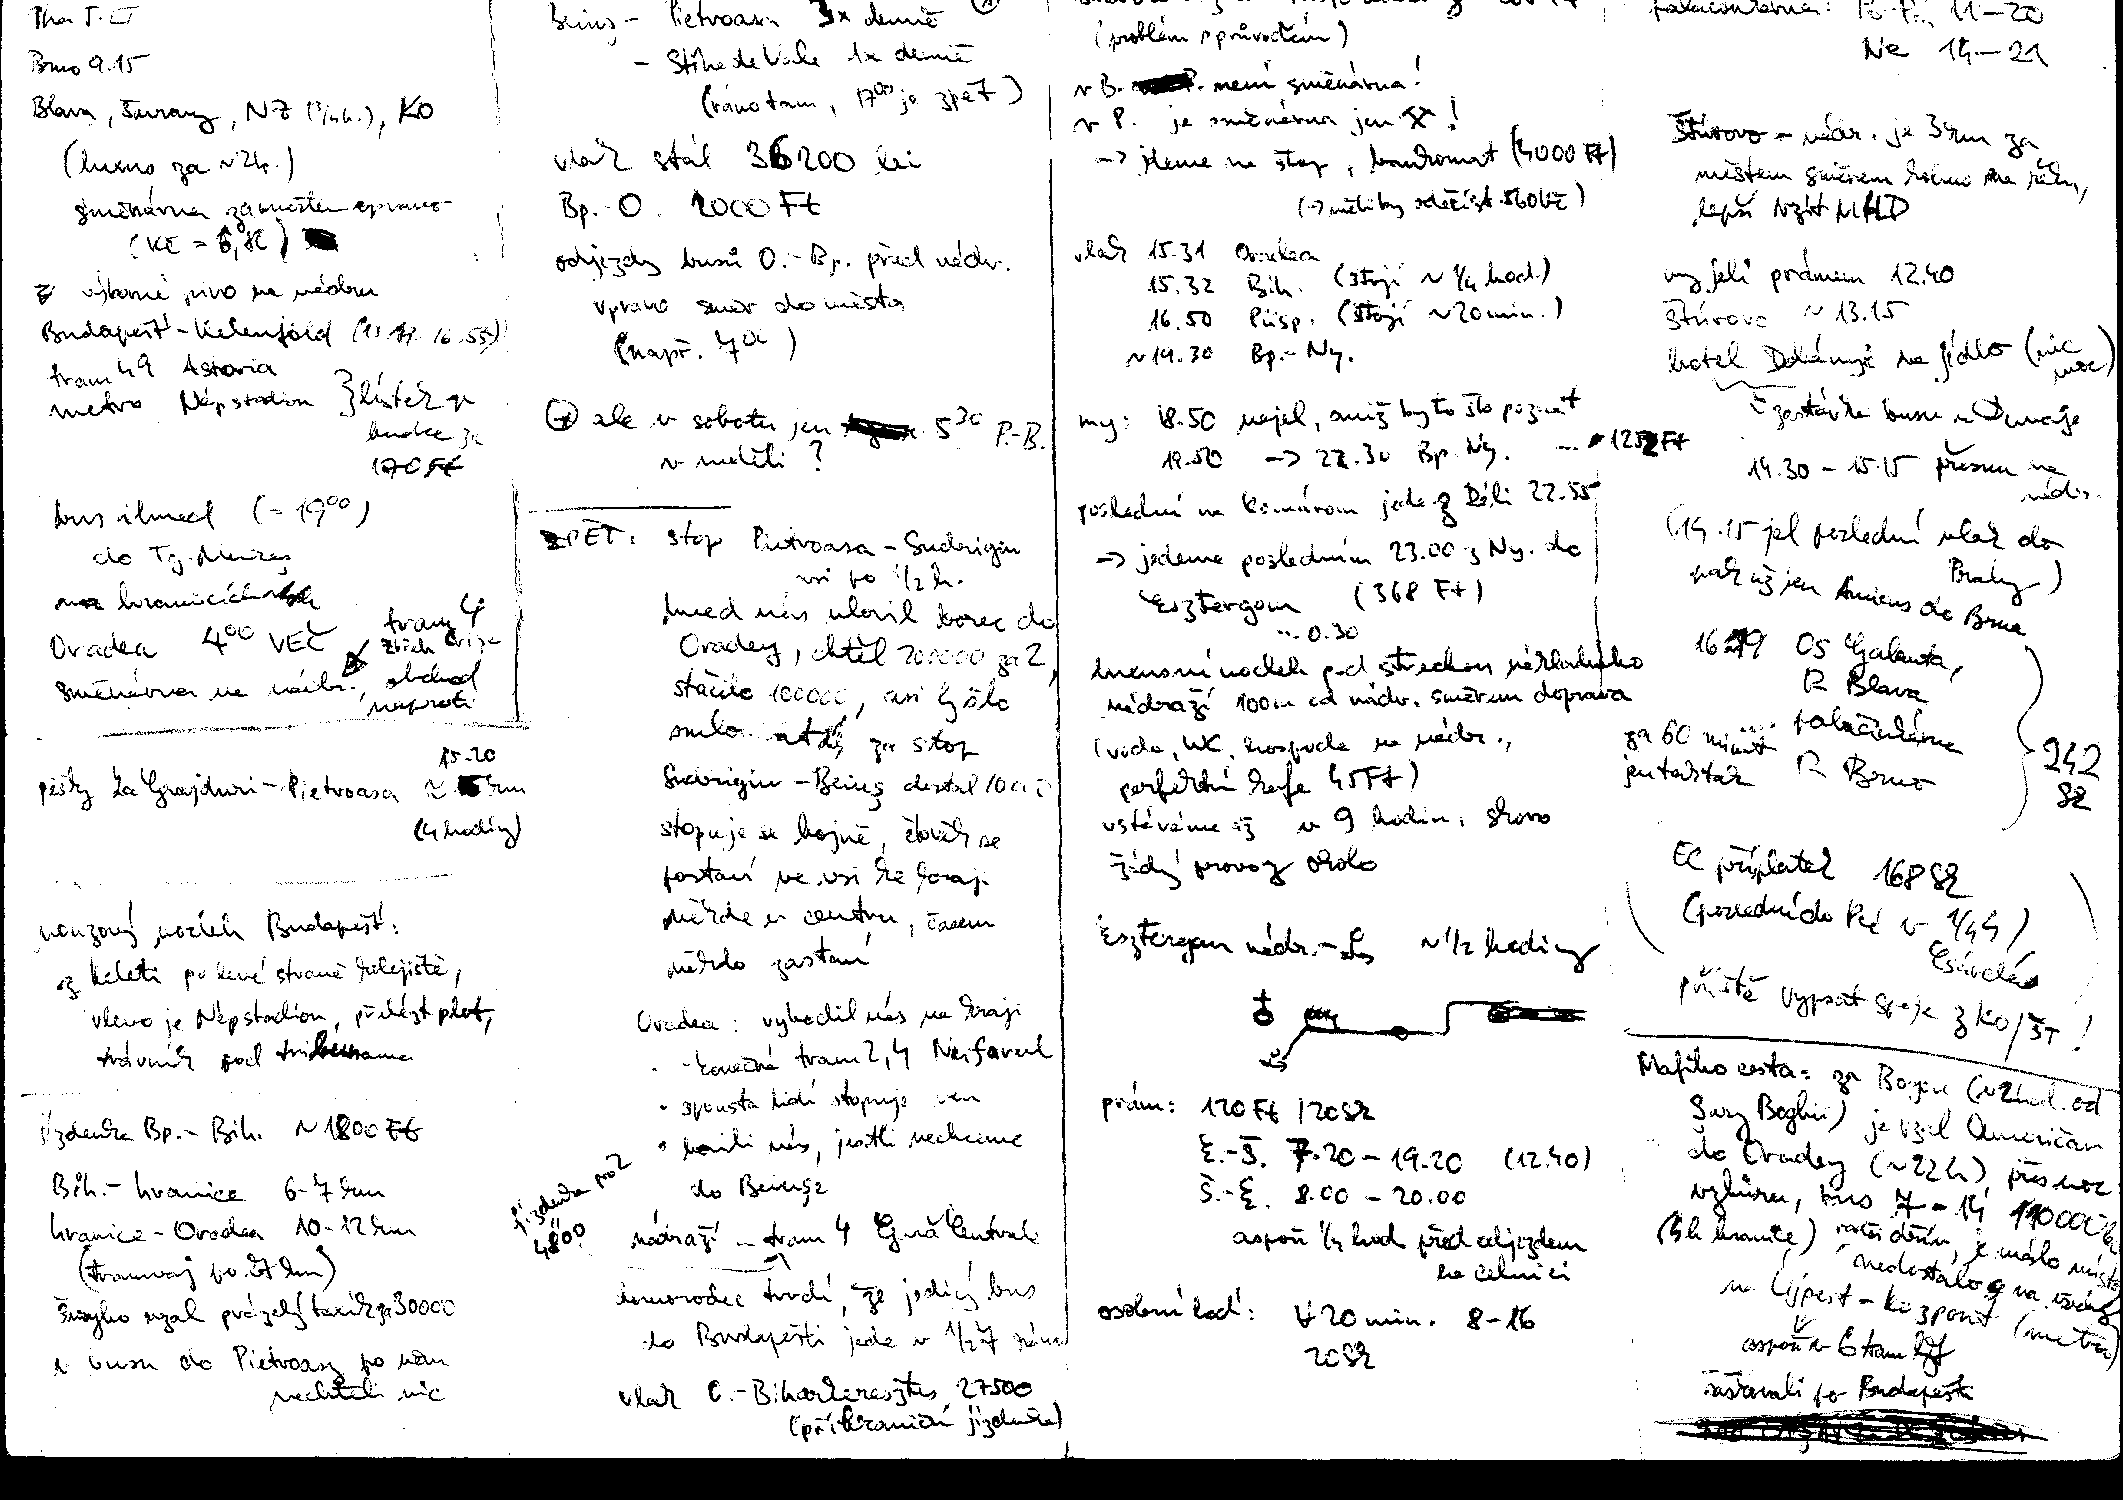 Brno 9.15
Blava, Šurany, NZ (3/4h.), KO
(luxus za ~2h.)
směnárna za mostem vpravo
výborné pivo na nádru
Budapešť-Kelenföld (16.55)
tram 49 Astoria
metro Népstadion } lístek z
budce za
170 Ft
bus ihned (- 19⁰⁰)
do Tg. Mureş
na hranicích
Oradea 4⁰⁰ VEČ
tramy 4
směnárna na nádr., obchod
naproti
15-20
pěšky La Grajduri - Pietroasa ~ km
(4 hodiny)
nouzový nocleh Budapešť:
z Keleti po levé straně kolejiště,
vlevo je Népstadion, přelézt plot,
trávník pod tribunama
jízdenka Bp.- Bih. ~1800 Ft
Bih.- hranice 6-7 km
hranice - Oradea 10-12 km
(tramvaj po 7 km)
vzal prázdný taxík za 30000
v busu do Pietroasy po nám
nechtěli nic
Beiuş - Pietroasa 3x denně
- Stîna de Vale 1x denně
(ráno tam, 17⁰⁰ je zpět)
vlak stál 36200 lei
Bp.-O. 2000 Ft
odjezdy busů O.-Bp. před nádr.
vpravo směr do města
(např. 7⁰⁰)
ale v sobotu jen 5³⁰ P.-B.
v neděli ?
ZPĚT: stop Pietroasa - Sudrigiu
asi po 1/2 h.
hned nás ulovil borec do
Oradey, chtěl 200000 za 2,
stačilo 100000, asi by šlo
míň za stop
Sudrigiu - Beiuş dostal 10000
stopuje se hojně, člověk se
postaví ve vsi ke kraji
někde v centru, časem
někdo zastaví
Oradea: vyhodil nás na kraji
· konečná tram 2,4 Nufarul
· spousta lidí stopuje ven
· honili nás, jestli nechceme
do Beiuşe
jízdenka
4800
nádraží - tram 4 Gară Centrală
domorodec tvrdí, že jediný bus
do Budapešti jede v 1/2 7 ráno
vlak O.-Biharkeresztes 27500
(příhraniční jízdenka)
(problém s průvodčím)
v B. není směnárna!
v P. je směnárna jen ⚒ !
-> jdeme na stop, bankomat (4000 Ft)
(-> měli by odečíst 560Kč)
vlak 15.31 Oradea
15.32 Bih. (stojí ~ 1/4 hod.)
16.50 Püsp. (stojí ~20 min.)
~19.30 Bp.- Ny.
my: 18.50 nejel, aniž by to šlo poznat
19.50 -> 22.30 Bp. Ny. ... 1252 Ft
poslední na Komárom jede z Déli 22.55
-> jedeme posledním 23.00 z Ny. do
Esztergom (368 Ft)
... 0.30
luxusní nocleh pod střechou nákladního
nádraží 100m od nádr. směrem doprava
(voda, WC, hospoda na nádr.,
perfektní kafe 45Ft)
vstáváme až v 9 hodin, skoro
žádný provoz okolo
Esztergom nádr.- ~1/2 hodiny
prám: 120 Ft / 20 Sk
E.-Š. 7.20 - 19.20 (12.40)
Š.-E. 8.00 - 20.00
aspoň 1/4 hod před odjezdem
na celnici
osobní loď: ∀ 20 min. 8-16
20 Sk
Po-Pá 11-20
Ne 14-21
Štúrovo - nádr. je 3km za
městem směrem kolmo na řeku,
lepší vzít MHD
vyjeli prámem 12.40
Štúrovo ~13.15
hotel na jídlo (nic
moc)
zastávka busu u Dunaje
14.30 - 15.15 přesun na
nádr.
(14.15 jel poslední vlak do
Prahy)
pak už jen Amicus do Brna
Os Galanta,
R Blava
palačinkárna
za 60 minut
R Brno
242
Sk
EC příplatek 168 Sk
(poslední do Pé v 1/4 4)
příště vypsat spoje z KO/ŠT !
Matiho cesta: za Bogou
je vzal Američan
do Oradey (~22h), přes noc
bus 7-14 110000
(4h hranice)
na Újpest - központ (metro)
šaškovali po Budapešti